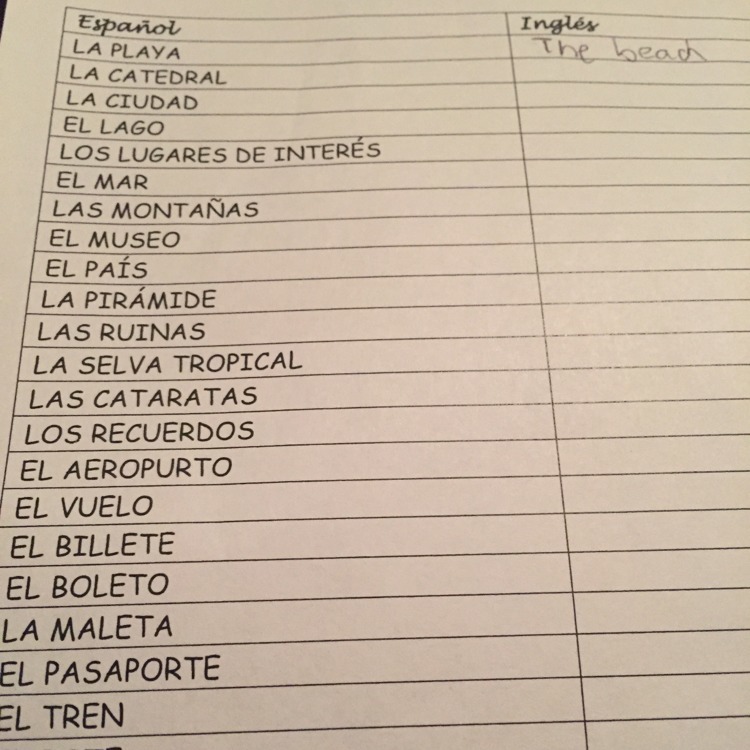 Español Inglés
LA PLAYA The beach
LA CATEDRAL
LA CIUDAD
EL LAGO
LOS LUGARES DE INTERÉS
EL MAR
LAS MONTAÑAS
EL MUSEO
EL PAÍS
LA PIRÁMIDE
LAS RUINAS
LA SELVA TROPICAL
LAS CATARATAS
LOS RECUERDOS
EL AEROPURTO
EL VUELO
EL BILLETE
EL BOLETO
LA MALETA
EL PASAPORTE
EL TREN